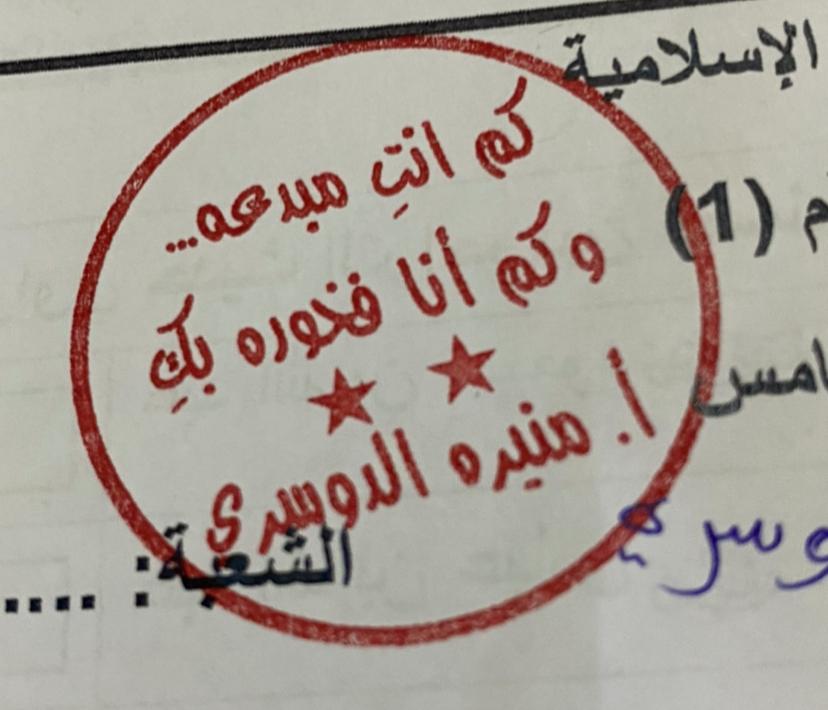 الإسلامية
كم انتِ مبدعه...
(1)
وكم أنا فخوره بكِ
أ. منيره الدوسري
الشعبة: ....